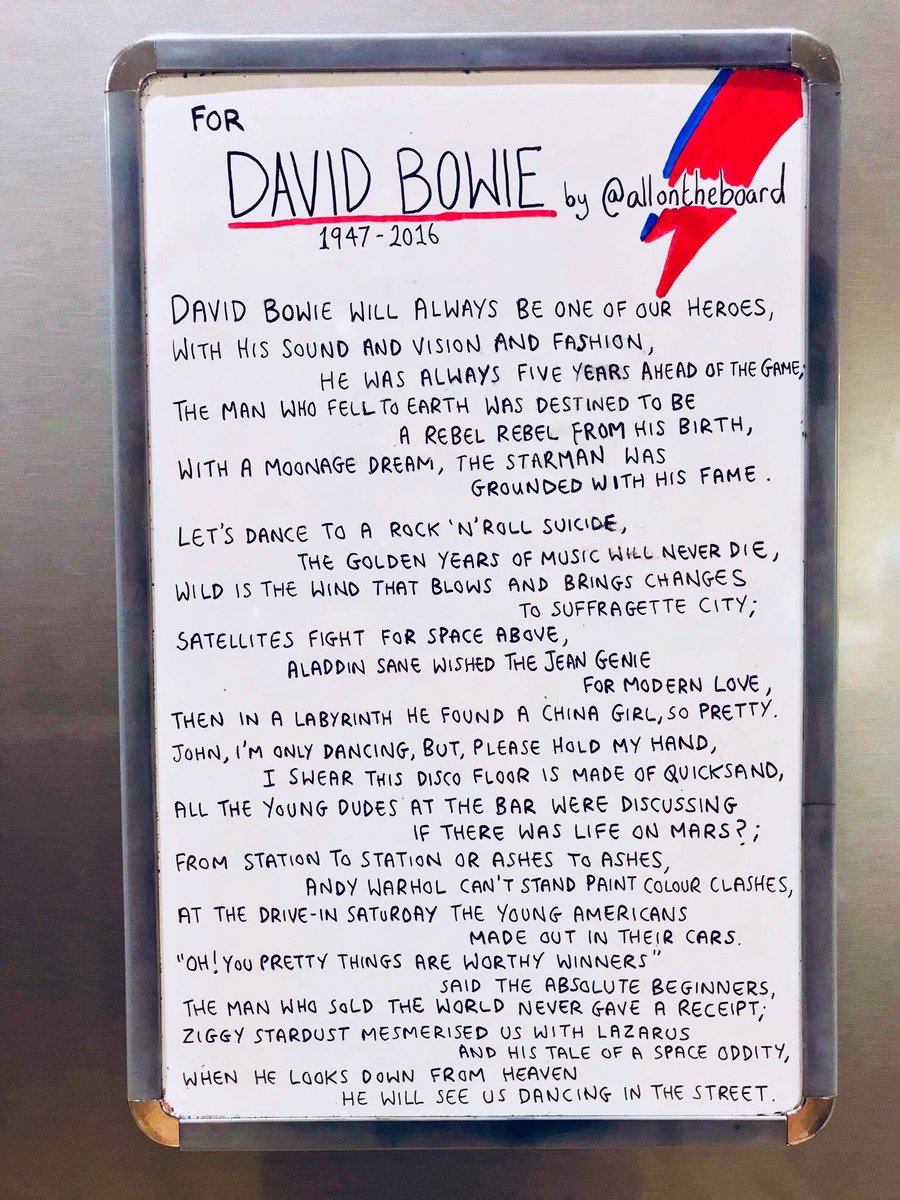 FOR
DAVID BOWIE by @allontheboard
1947-2016
DAVID BOWIE WILL ALWAYS BE ONE OF OUR HEROES,
WITH HIS SOUND AND VISION AND FASHION,
HE WAS ALWAYS FIVE YEARS AHEAD OF THE GAME;
THE MAN WHO FELL TO EARTH WAS DESTINED TO BE
A REBEL REBEL FROM HIS BIRTH,
WITH A MOONAGE DREAM, THE STARMAN WAS
GROUNDED WITH HIS FAME.
LET'S DANCE TO A ROCK 'N' ROLL SUICIDE,
THE GOLDEN YEARS OF MUSIC WILL NEVER DIE,
WILD IS THE WIND THAT BLOWS AND BRINGS CHANGES
TO SUFFRAGETTE CITY;
SATELLITES FIGHT FOR SPACE ABOVE,
ALADDIN SANE WISHED THE JEAN GENIE
FOR MODERN LOVE,
THEN IN A LABYRINTH HE FOUND A CHINA GIRL, SO PRETTY.
JOHN, I'M ONLY DANCING, BUT, PLEASE HOLD MY HAND,
I SWEAR THIS DISCO FLOOR IS MADE OF QUICKSAND,
ALL THE YOUNG DUDES AT THE BAR WERE DISCUSSING
IF THERE WAS LIFE ON MARS?;
FROM STATION TO STATION OR ASHES TO ASHES,
ANDY WARHOL CAN'T STAND PAINT COLOUR CLASHES,
AT THE DRIVE-IN SATURDAY THE YOUNG AMERICANS
MADE OUT IN THEIR CARS.
"OH! YOU PRETTY THINGS ARE WORTHY WINNERS"
SAID THE ABSOLUTE BEGINNERS,
THE MAN WHO SOLD THE WORLD NEVER GAVE A RECEIPT;
ZIGGY STARDUST MESMERISED US WITH LAZARUS
AND HIS TALE OF A SPACE ODDITY,
WHEN HE LOOKS DOWN FROM HEAVEN
HE WILL SEE US DANCING IN THE STREET.